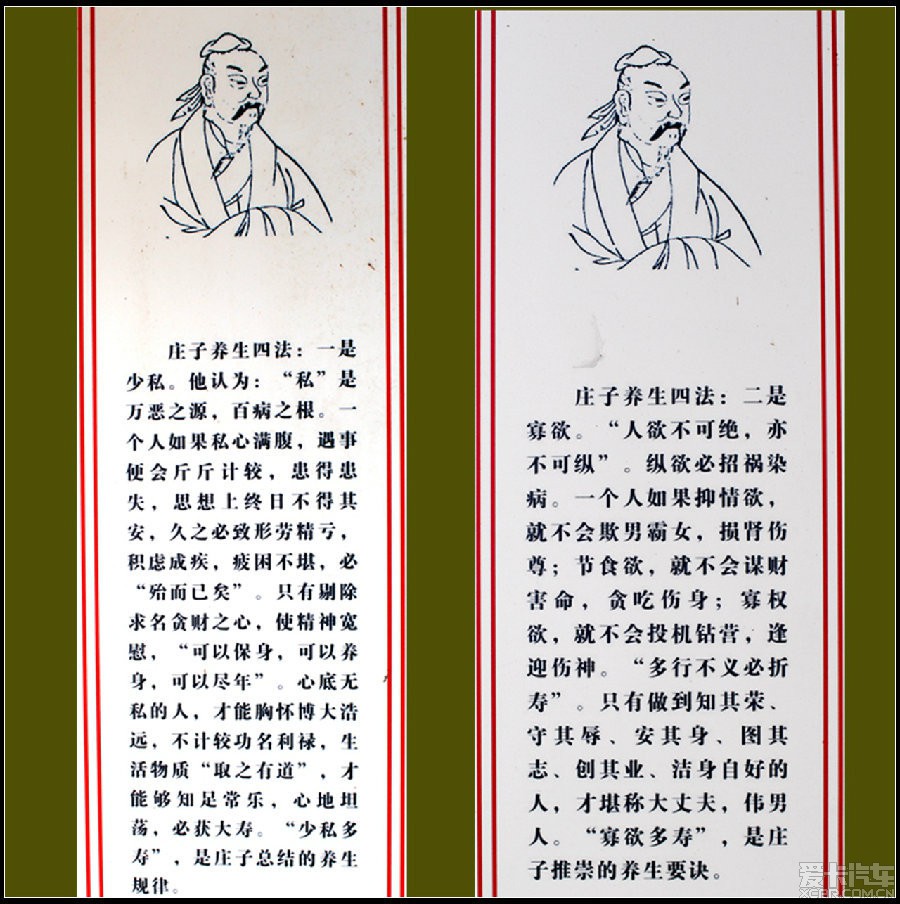 庄子养生四法：一是
少私。他认为：“私”是
万恶之源，百病之根。一
个人如果私心满腹，遇事
便会斤斤计较，患得患
失，思想上终日不得其
安，久之必致形劳精亏，
积虑成疾，疲困不堪，必
“殆而已矣”。只有剔除
求名贪财之心，使精神宽
慰，“可以保身，可以养
身，可以尽年”。心底无
私的人，才能胸怀博大浩
远，不计较功名利禄，生
活物质“取之有道”，才
能够知足常乐，心地坦
荡，必获大寿。“少私多
寿”，是庄子总结的养生
规律。
庄子养生四法：二是
寡欲。“人欲不可绝，亦
不可纵”。纵欲必招祸染
病。一个人如果抑情欲，
就不会欺男霸女，损肾伤
尊；节食欲，就不会谋财
害命，贪吃伤身；寡权
欲，就不会投机钻营，逢
迎伤神。“多行不义必折
寿”。只有做到知其荣、
守其辱、安其身、图其
志、创其业、洁身自好的
人，才堪称大丈夫，伟男
人。“寡欲多寿”，是庄
子推崇的养生要诀。
爱卡汽车
XCAR.COM.CN